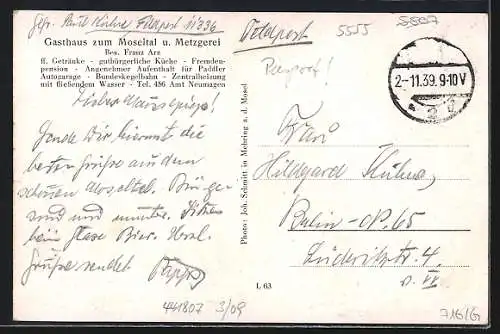 Gefr. Paul Kühne, Feldpost 11336
Gasthaus zum Moseltal u. Metzgerei
Bes. Franz Arz
ff. Getränke - gutbürgerliche Küche - Fremden-
pension - Angenehmer Aufenthalt für Paddler
Autogarage - Bundeskegelbahn - Zentralheizung
mit fließendem Wasser - Tel. 486 Amt Neumagen
Sende Dir hiermit die
besten Grüße aus dem
schönen Moseltal. Bin ge-
sund und munter.
beim Glase Bier. Herzl.
Grüße sendet Pappi
441807 3/09
Photo: Joh. Schmitt in Mehring a. d. Mosel
L 63
Feldpost
5555
2.-11.39. 9-10 V
Frau
Hildegard Kühne,
Berlin-N. 65
Lüderitzstr. 4.
v. IV
716/G